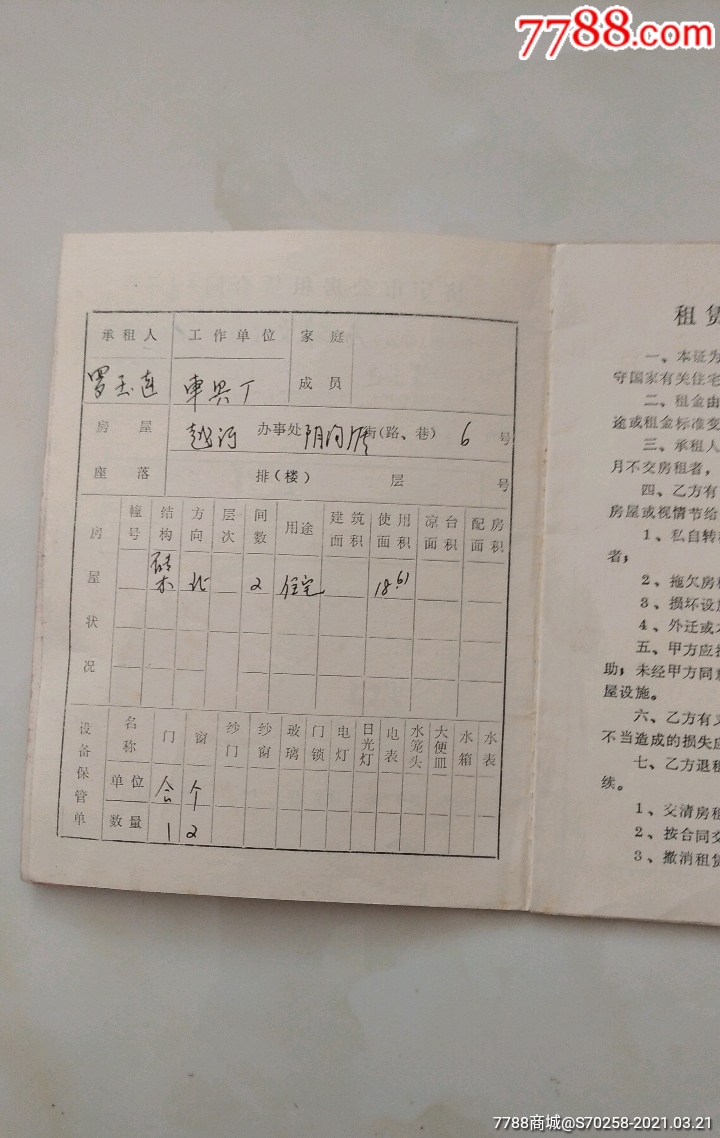 7788.com
承租人 工作单位 家庭
成员
罗玉连
房屋 越河 办事处 街(路、巷) 6 号
座落 排(楼) 层 号
房屋状况 幢号 结构 方向 层次 间数 用途 建筑面积 使用面积 凉台面积 配房面积
砖木 北 2 住宅 18.61
设备保管单 名称 门 窗 纱门 纱窗 玻璃 门锁 电灯 日光灯 电表 水笼头 大便皿 水箱 水表
单位 合 个
数量 1 2
租赁
一、本证为
守国家有关住宅
二、租金由
途或租金标准变
三、承租人
月不交房租者，
四、乙方有
房屋或视情节给
1、私自转
者；
2、拖欠房
3、损坏设施
4、外迁或
五、甲方应
助；未经甲方同意
屋设施。
六、乙方有义
不当造成的损失应
七、乙方退租
续。
1、交清房租
2、按合同交
3、撤消租赁
7788商城@S70258-2021.03.21